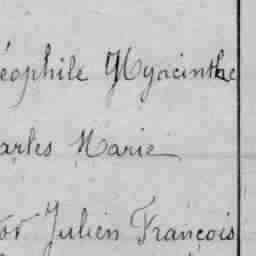 éophile Hyacinthe
arles Marie
or Julien François